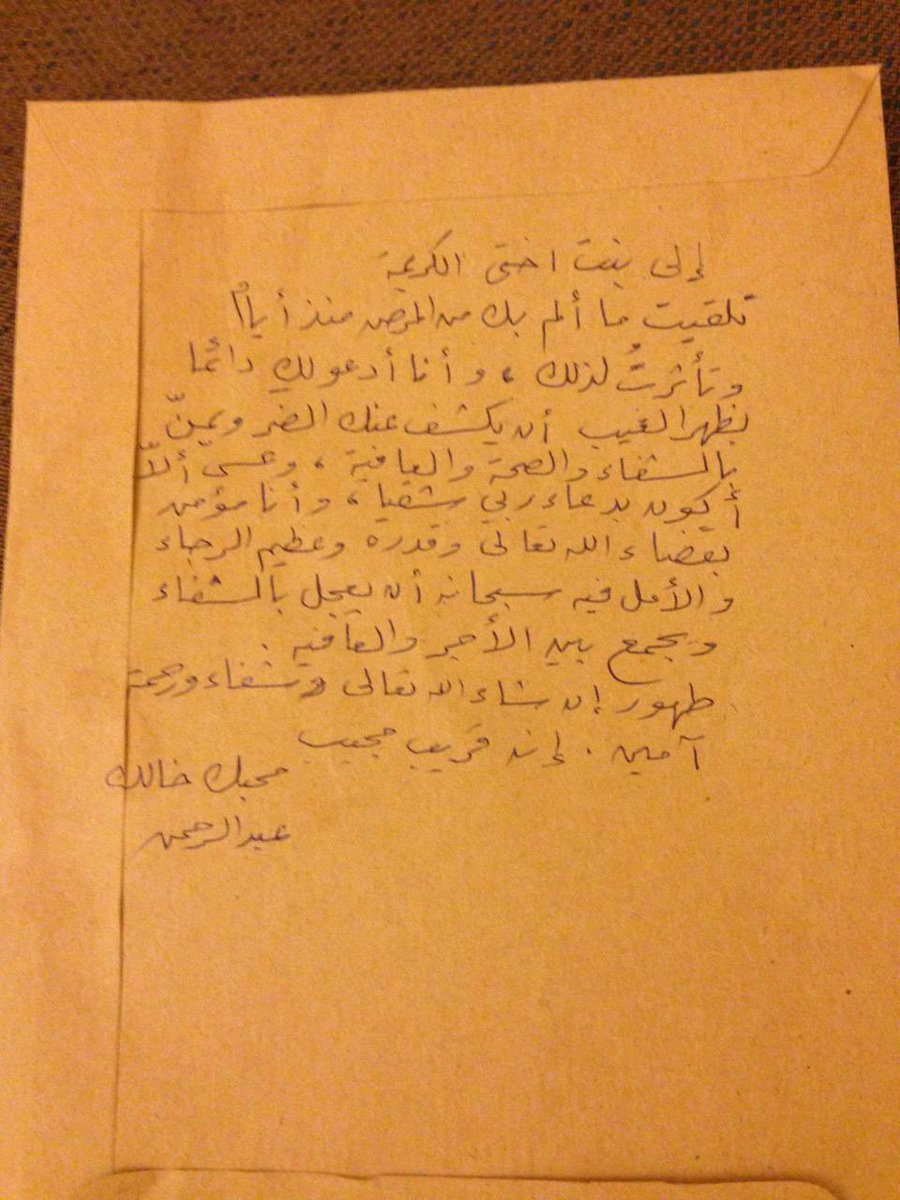 إلى بنت اختي الكريمة
تلقيت ما ألم بك من المرض منذ أيام
وتأثرتُ لذلك، وأنا أدعو لكِ دائمًا
بظهر الغيب أن يكشف عنك الضر ويمنّ
بالشفاء والصحة والعافية، وعسى ألّا
أكون بدعاء ربي شقيا، وأنا مؤمن
بقضاء الله تعالى وقدره وعظيم الرجاء
والأمل فيه سبحانه أن يعجل بالشفاء
ويجمع بين الأجر والعافية.
طهور إن شاء الله تعالى وشفاء ورحمة
آمين. إنه قريب مجيب
محبك خالك
عبدالرحمن